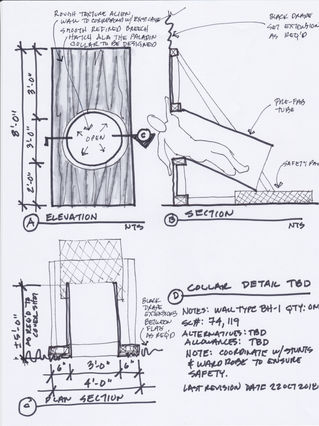 ROUGH TEXTURE ALIEN
WALL TO CORRESPOND W/
SMOOTH REFINED BREECH
HATCH ALA THE PALADIN
COLLAR TO BE DESIGNED
BLACK DRAPE
SET EXTENSION
AS REQ'D
8'-0"
3'-0"
3'-0"
2'-0"
OPEN
C
PRE-FAB
TUBE
SAFETY PAD
A ELEVATION
NTS
B SECTION
NTS
± 5'-0"
AS REQ'D TO
COVER STUNT
BLACK
DRAPE
EXTENSIONS
BETWEEN
FLATS
AS REQ'D
6" 3'-0" 6"
4'-0"
C PLAN SECTION
D COLLAR DETAIL TBD
NOTES: WALL TYPE BH-1 QTY: ONE
SC#: 74, 119
ALTERNATIVES: TBD
ALLOWANCES: TBD
NOTE: COORDINATE W/ STUNTS
& WARDROBE TO ENSURE
SAFETY.
LAST REVISION DATE 22 OCT 2018